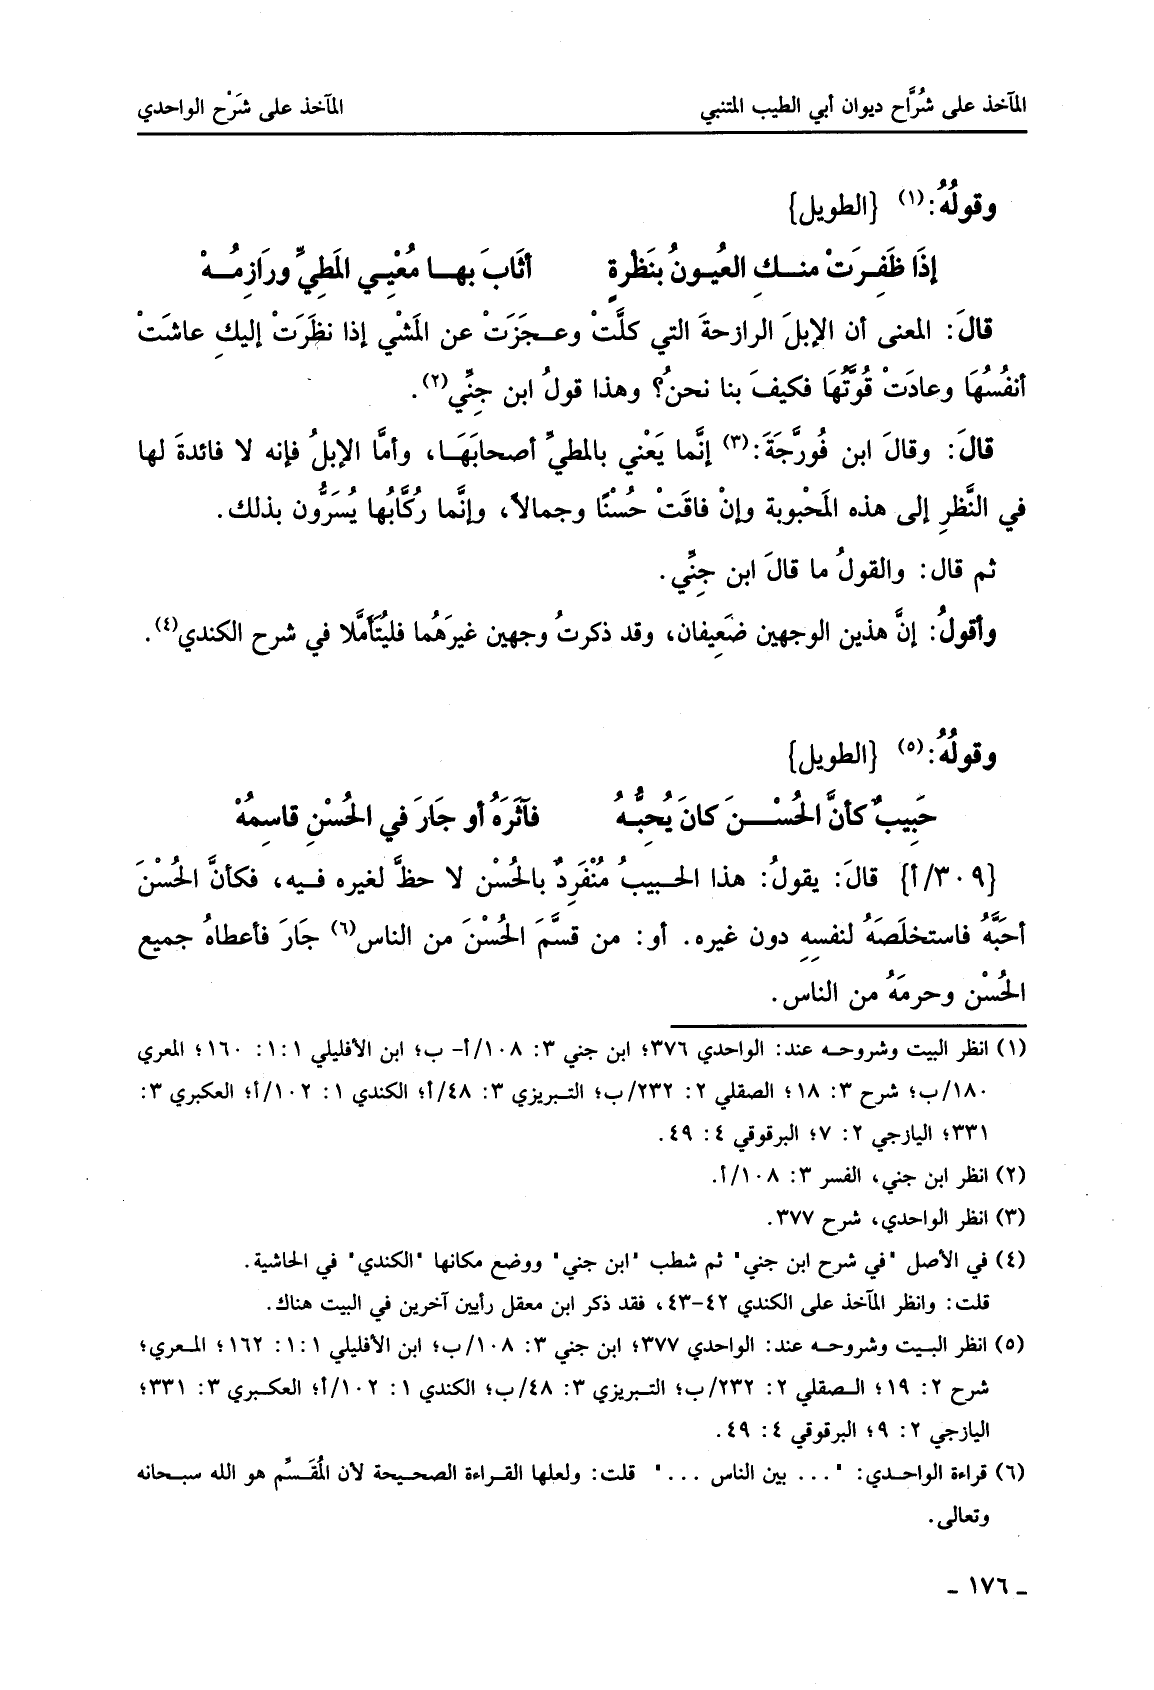 المآخذ على شُرَّاح ديوان أبي الطيب المتنبي المآخذ على شَرْح الواحدي
وقولُهُ:(١) {الطويل}
إذَا ظَفِرَتْ منكِ العُيونُ بنَظْرةٍ أثَابَ بها مُعْيِي المَطِيِّ ورَازِمُهْ
قالَ: المعنى أن الإبلَ الرازحةَ التي كلَّتْ وعجَزَتْ عن المَشْي إذا نظَرَتْ إليكِ عاشَتْ
أنفُسُهَا وعادَتْ قُوَّتُهَا فكيفَ بنا نحنُ؟ وهذا قولُ ابن جِنِّي(٢).
قالَ: وقالَ ابن فُورَّجَةَ:(٣) إنَّما يَعْني بالمطيِّ أصحابَهَا، وأمَّا الإبلُ فإنه لا فائدةَ لها
في النَّظرِ إلى هذه المَحْبوبة وإنْ فاقَتْ حُسْنًا وجمالاً، وإنَّما رُكَّابُها يُسَرُّون بذلك.
ثم قال: والقولُ ما قالَ ابن جِنِّي.
وأقولُ: إنَّ هذين الوجهين ضَعِيفان، وقد ذكرتُ وجهين غيرَهُما فليُتَأمَّلا في شرح الكندي(٤).
وقولُهُ:(٥) {الطويل}
حَبِيبٌ كأنَّ الحُسْنَ كانَ يُحبُّهُ فآثَرَهُ أو جَارَ في الحُسْنِ قاسِمُهْ
{٣٠٩/أ} قالَ: يقولُ: هذا الحبيبُ مُنْفَرِدٌ بالحُسْن لا حظَّ لغيره فيه، فكأنَّ الحُسْنَ
أحَبَّهُ فاستخلَصَهُ لنفسِهِ دون غيره. أو: من قسَّمَ الحُسْنَ من الناس(٦) جَارَ فأعطاهُ جميع
الحُسْنِ وحرمَهُ من الناس.
(١) انظر البيت وشروحه عند: الواحدي ٣٧٦؛ ابن جني ٣: ١٠٨/أ- ب؛ ابن الأفليلي ١:١: ١٦٠؛ المعري
١٨٠/ب؛ شرح ٣: ١٨؛ الصقلي ٢: ٢٣٢/ب؛ التبريزي ٣: ٤٨/أ؛ الكندي ١: ١٠٢/أ؛ العكبري ٣:
٣٣١؛ اليازجي ٢: ٧؛ البرقوقي ٤: ٤٩.
(٢) انظر ابن جني، الفسر ٣: ١٠٨/أ.
(٣) انظر الواحدي، شرح ٣٧٧.
(٤) في الأصل "في شرح ابن جني" ثم شطب "ابن جني" ووضع مكانها "الكندي" في الحاشية.
قلت: وانظر المآخذ على الكندي ٤٢-٤٣، فقد ذكر ابن معقل رأيين آخرين في البيت هناك.
(٥) انظر البيت وشروحه عند: الواحدي ٣٧٧؛ ابن جني ٣: ١٠٨/ب؛ ابن الأفليلي ١:١: ١٦٢؛ المعري؛
شرح ٢: ١٩؛ الصقلي ٢: ٢٣٢/ب؛ التبريزي ٣: ٤٨/ب؛ الكندي ١: ١٠٢/أ؛ العكبري ٣: ٣٣١؛
اليازجي ٢: ٩؛ البرقوقي ٤: ٤٩.
(٦) قراءة الواحدي: "... بين الناس ..." قلت: ولعلها القراءة الصحيحة لأن المُقَسِّم هو الله سبحانه
وتعالى.
ـ ١٧٦ ـ